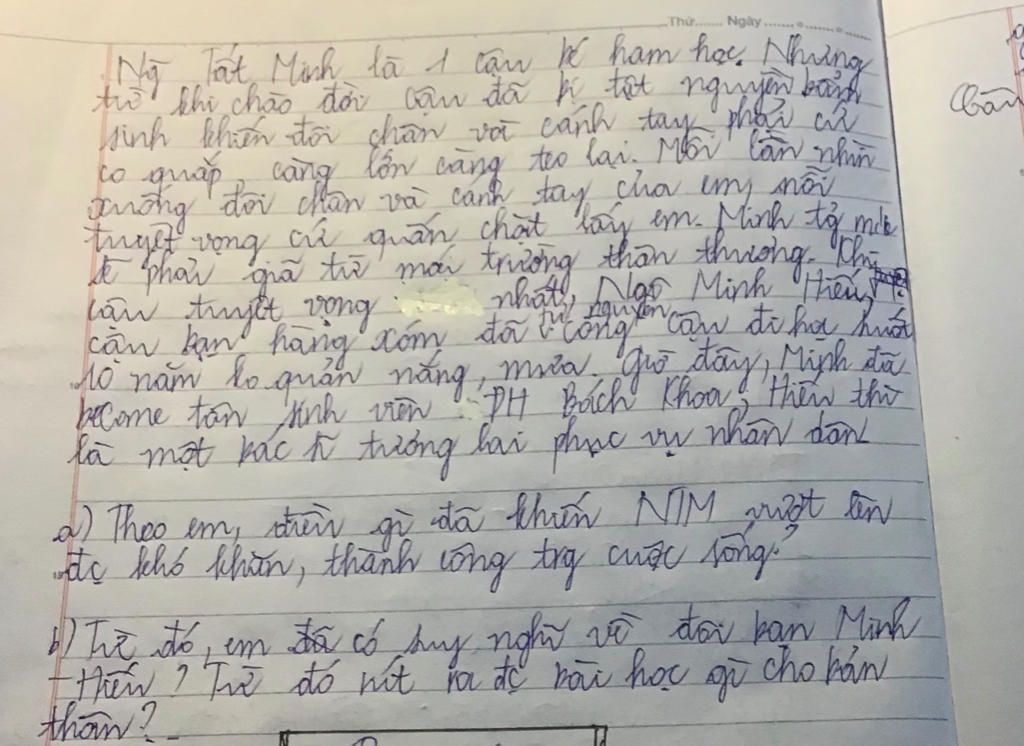 Thứ....... Ngày.......
Ng Tất Minh là 1 cậu bé ham học. Nhưng
từ khi chào đời cậu đã bị tật nguyền bẩm
sinh khiến đôi chân và cánh tay phải cứ
co quắp, càng lớn càng teo lại. Mỗi lần nhìn
xuống đôi chân và cánh tay của em, nỗi
tuyệt vọng cứ quấn chặt lấy em. Minh tg mình
sẽ phải giã từ mái trường thân thương. Khi
cậu tuyệt vọng nhất, Ngô Minh Hiếu,
cậu bạn hàng xóm đã tự nguyện cõng cậu đi học suốt
10 năm ko quản nắng, mưa. Giờ đây, Minh đã
become tân sinh viên ĐH Bách Khoa, Hiếu thì
là một bác sĩ tương lai phục vụ nhân dân
a) Theo em, điều gì đã khiến NTM vượt lên
đc khó khăn, thành công trg cuộc sống?
b) Từ đó, em đã có suy nghĩ về đôi bạn Minh
- Hiếu? Từ đó rút ra đc bài học gì cho bản
thân?